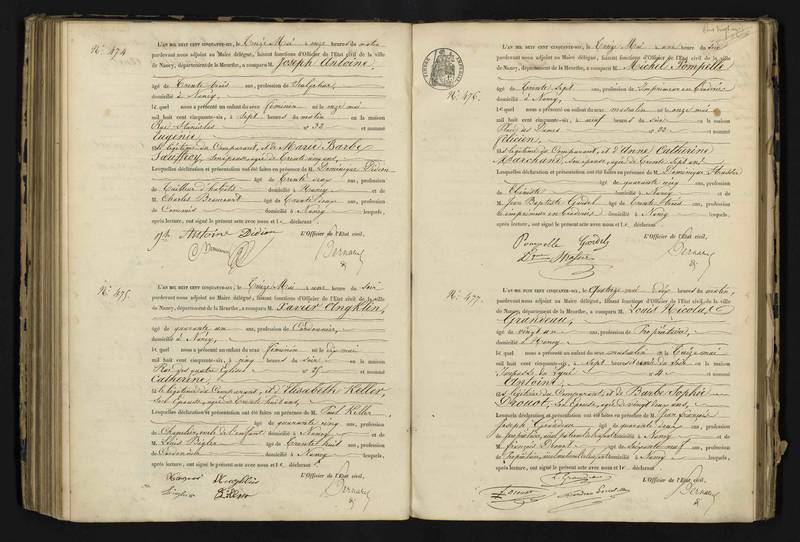 N° 474
L'AN MIL HUIT CENT CINQUANTE-SIX, le Treize Mai à onze heures du matin
pardevant nous adjoint au Maire délégué, faisant fonctions d'Officier de l'État civil de la ville
de Nancy, département de la Meurthe, a comparu M. Joseph Antoine,
âgé de trente trois ans, profession de Sculpteur,
domicilié à Nancy,
Lequel nous a présenté un enfant du sexe féminin né le onze mai
mil huit cent cinquante-six, à sept heures du matin en la maison
Rue Stanislas n° 32 et nommé
Eugénie,
fille légitime du Comparant, et de Marie Barbe
âgée de trente
Lesquelles déclaration et présentation ont été faites en présence de M. Dominique Didion
âgé de trente ans, profession
de Tailleur d'habits domicilié à Nancy et de
M. Charles âgé de trente ans, profession
de Commis domicilié à Nancy lesquels,
après lecture, ont signé le présent acte avec nous et le déclarant.
Antoine Didion L'Officier de l'État civil,
N° 475.
L'AN MIL HUIT CENT CINQUANTE-SIX, le Treize Mai à une heure du soir
pardevant nous adjoint au Maire délégué, faisant fonctions d'Officier de l'État civil de la ville
de Nancy, département de la Meurthe, a comparu M. Xavier
âgé de quarante un ans, profession de Cordonnier,
domicilié à Nancy,
Lequel nous a présenté un enfant du sexe féminin né le dix mai
mil huit cent cinquante-six, à cinq heures du soir en la maison
Rue des quatre Églises n° 25 et nommé
Catherine,
fille légitime du Comparant, et d'Elisabeth Keller,
son Épouse, âgée de trente huit ans,
Lesquelles déclaration et présentation ont été faites en présence de M. Paul Keller
âgé de quarante cinq ans, profession
de Chapelier, oncle de l'enfant domicilié à Nancy et de
M. Louis âgé de trente huit ans, profession
de Cordonnier domicilié à Nancy lesquels,
après lecture, ont signé le présent acte avec nous et le déclarant.
L'Officier de l'État civil,
N° 476.
L'AN MIL HUIT CENT CINQUANTE-SIX, le Treize Mai à une heure du soir
pardevant nous adjoint au Maire délégué, faisant fonctions d'Officier de l'État civil de la ville
de Nancy, département de la Meurthe, a comparu M. Michel Pompelle
âgé de trente sept ans, profession de Imprimeur en
domicilié à Nancy,
Lequel nous a présenté un enfant du sexe masculin né le onze mai
mil huit cent cinquante-six, à neuf heures du soir en la maison
Place des Dames n° 22 et nommé
Félicien,
fils légitime du Comparant, et d'Anne Catherine
Marchand, son épouse, âgée de trente sept ans
Lesquelles déclaration et présentation ont été faites en présence de M. Dominique
âgé de quarante cinq ans, profession
de domicilié à Nancy et de
M. Jean Baptiste âgé de trente trois ans, profession
de imprimeur en domicilié à Nancy lesquels,
après lecture, ont signé le présent acte avec nous et le déclarant.
Pompelle L'Officier de l'État civil,
N° 477.
L'AN MIL HUIT CENT CINQUANTE-SIX, le Quatorze mai à dix heures du matin,
pardevant nous adjoint au Maire délégué, faisant fonctions d'Officier de l'État civil de la ville
de Nancy, département de la Meurthe, a comparu M. Louis Nicolas
Grandeau,
âgé de vingt un ans, profession de Propriétaire,
domicilié à Nancy
Lequel nous a présenté un enfant du sexe masculin né le Treize mai
mil huit cent cinquante-six, à sept heures du soir en la maison
Impasse n° 4 et nommé
Antoine,
fils légitime du Comparant, et de Barbe Sophie
Drouot, son Épouse, âgée de vingt deux ans,
Lesquelles déclaration et présentation ont été faites en présence de M. Jean François
Joseph Grandeau âgé de quarante deux ans, profession
de propriétaire, domicilié à Nancy et de
M. François Drouot âgé de soixante neuf ans, profession
de Propriétaire, domicilié à Nancy lesquels,
après lecture, ont signé le présent acte avec nous et le déclarant.
L. Grandeau L'Officier de l'État civil,